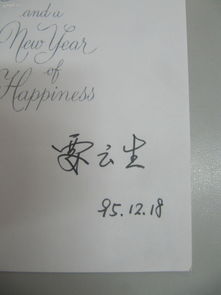 and a
New Year
of
Happiness
云生
95.12.18